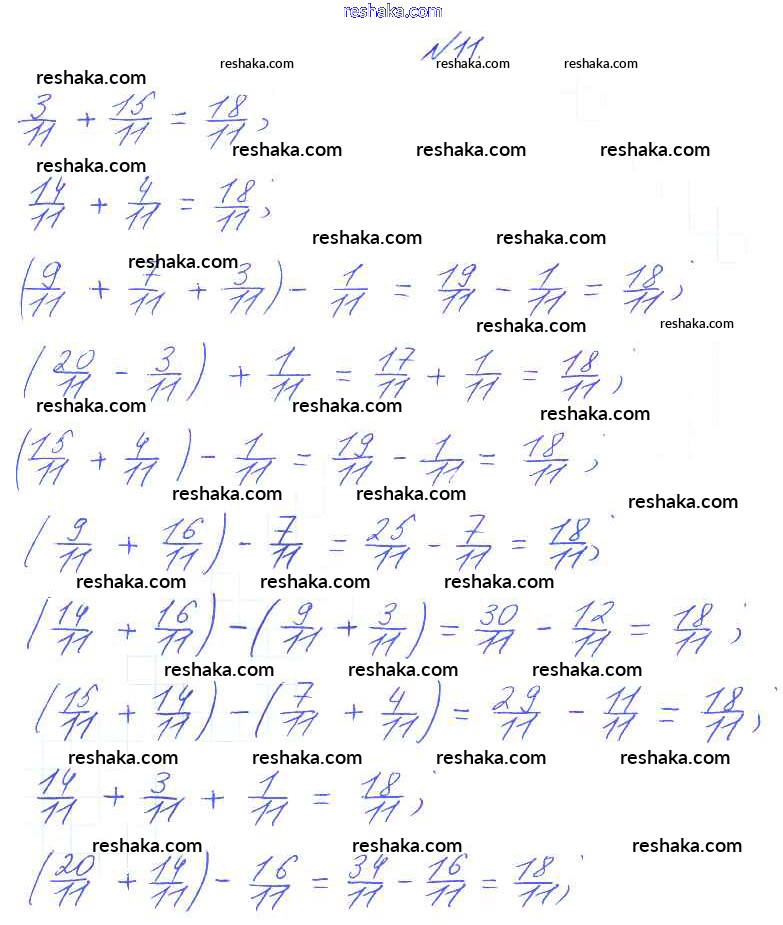 reshaka.com
№11.
reshaka.com reshaka.com reshaka.com
3/11 + 15/11 = 18/11;
reshaka.com reshaka.com reshaka.com
reshaka.com
14/11 + 4/11 = 18/11;
reshaka.com reshaka.com
reshaka.com
(9/11 + 7/11 + 3/11) - 1/11 = 19/11 - 1/11 = 18/11;
reshaka.com reshaka.com
(20/11 - 3/11) + 1/11 = 17/11 + 1/11 = 18/11;
reshaka.com reshaka.com reshaka.com
(15/11 + 4/11) - 1/11 = 19/11 - 1/11 = 18/11;
reshaka.com reshaka.com reshaka.com
(9/11 + 16/11) - 7/11 = 25/11 - 7/11 = 18/11;
reshaka.com reshaka.com reshaka.com
(14/11 + 16/11) - (9/11 + 3/11) = 30/11 - 12/11 = 18/11;
reshaka.com reshaka.com reshaka.com
(15/11 + 14/11) - (7/11 + 4/11) = 29/11 - 11/11 = 18/11;
reshaka.com reshaka.com reshaka.com reshaka.com
14/11 + 3/11 + 1/11 = 18/11;
reshaka.com reshaka.com reshaka.com reshaka.com
(20/11 + 14/11) - 16/11 = 34/11 - 16/11 = 18/11;